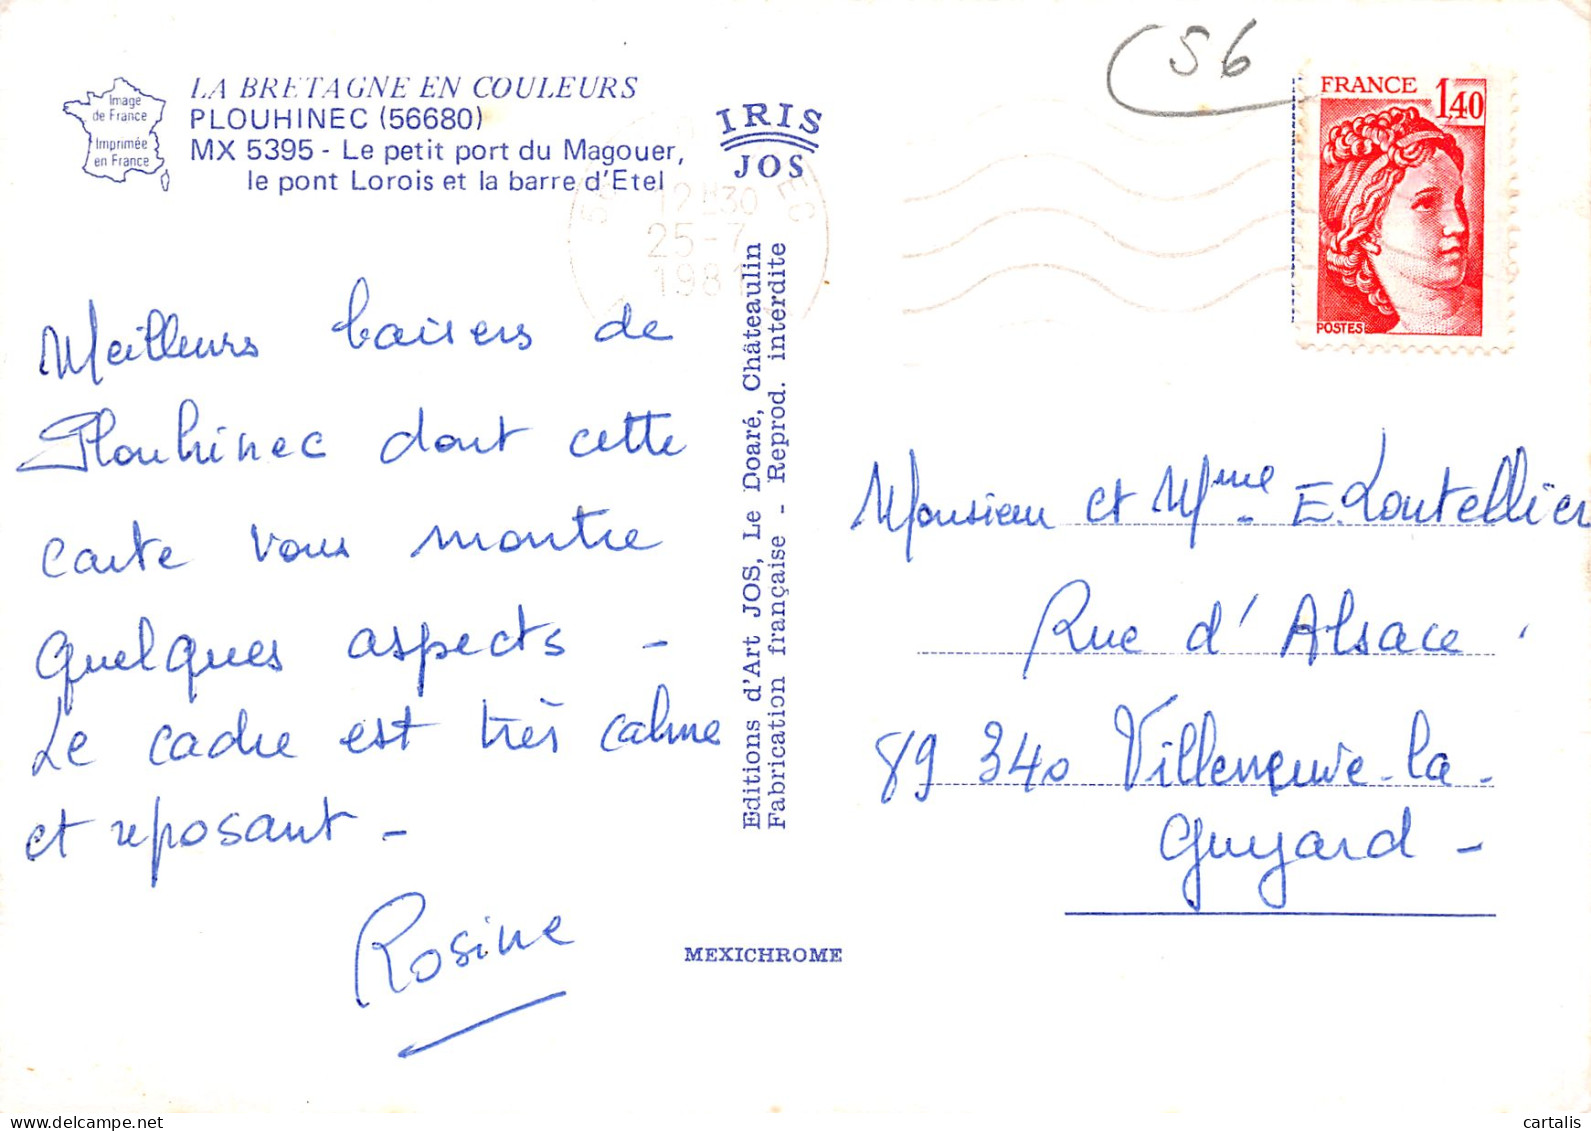 LA BRETAGNE EN COULEURS
PLOUHINEC (56680)
MX 5395 - Le petit port du Magouer,
le pont Lorois et la barre d'Etel
Image
de France
Imprimée
en France
IRIS
JOS
56
FRANCE
1,40
POSTES
12H30
25-7
1981
Meilleurs baisers de
Plouhinec dont cette
carte vous montre
quelques aspects -
Le cadre est très calme
et reposant -
Rosine
Editions d'Art JOS, Le Doaré, Châteaulin
Fabrication française - Reprod. interdite
MEXICHROME
Monsieur et Mme E. Loutellier
Rue d'Alsace
89 340 Villeneuve-la-
Guyard -
Delcampe.net
cartalis